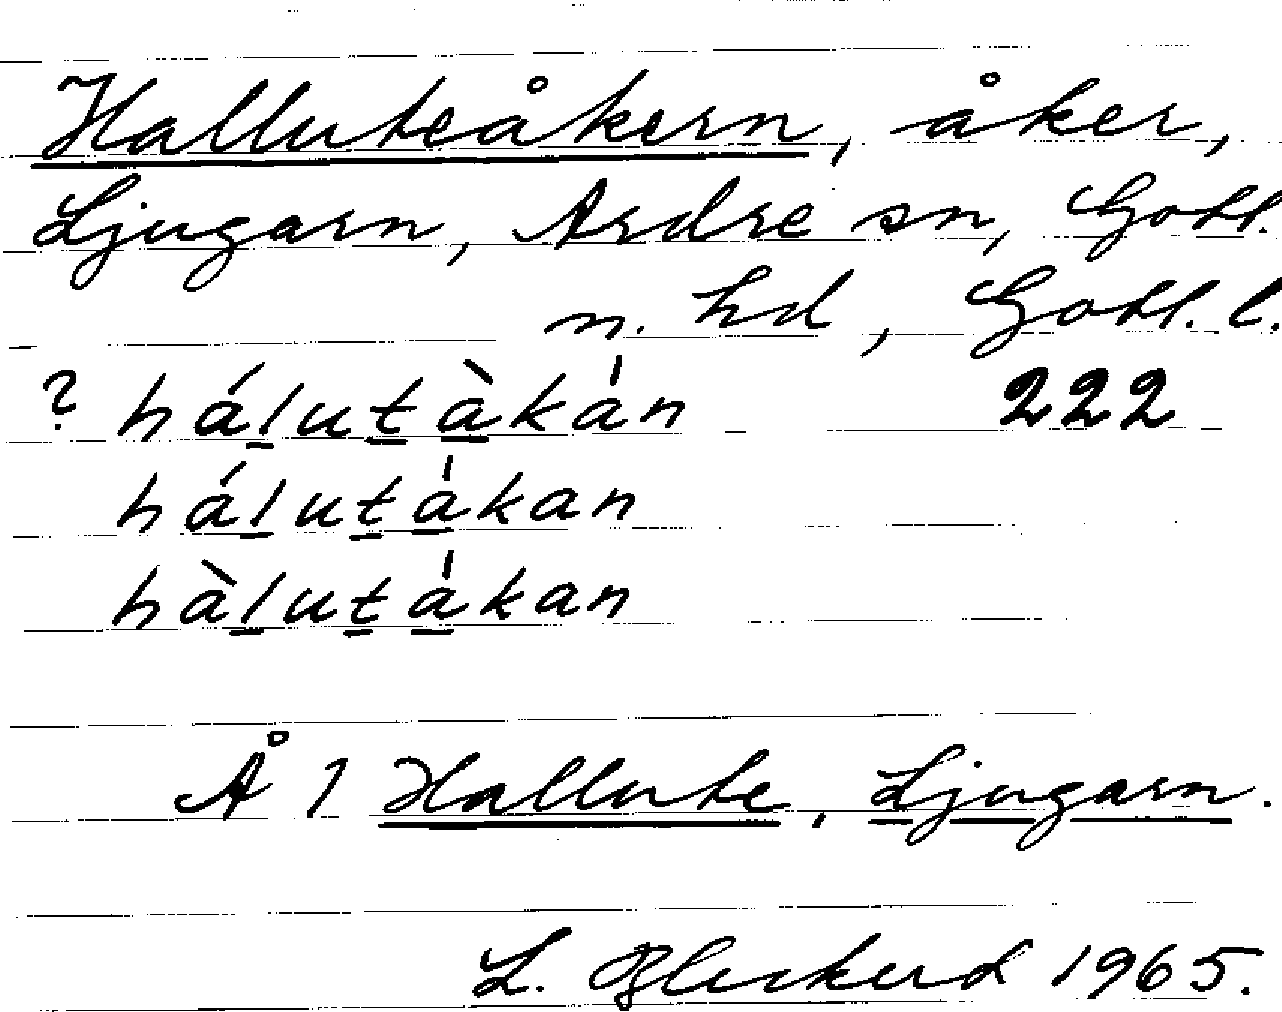 Halluteåkern, åker,
Ljugarn, Ardre sn, Gotl.
n. hd, Gotl. l.
? hálutàkán 222
hálutákan
hàlutákan
Å 1 Hallute, Ljugarn.
L. 1965.